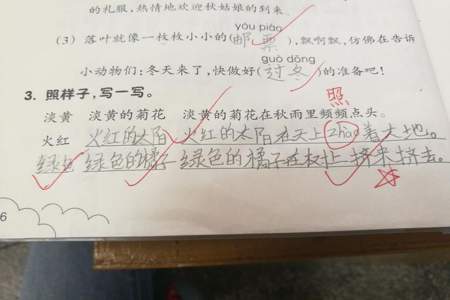 的礼服,热情地欢迎秋姑娘的到来。
yóu piào
(3) 落叶就像一枚枚小小的(邮票),飘啊飘,仿佛在告诉
guò dōng
小动物们:冬天来了,快做好(过冬)的准备吧!
3. 照样子,写一写。
照
淡黄 淡黄的菊花 淡黄的菊花在秋雨里频频点头。
火红 火红的太阳 火红的太阳在天上zhào着大地。
绿色 绿色的橘子 绿色的橘子在枝上挤来挤去。
6